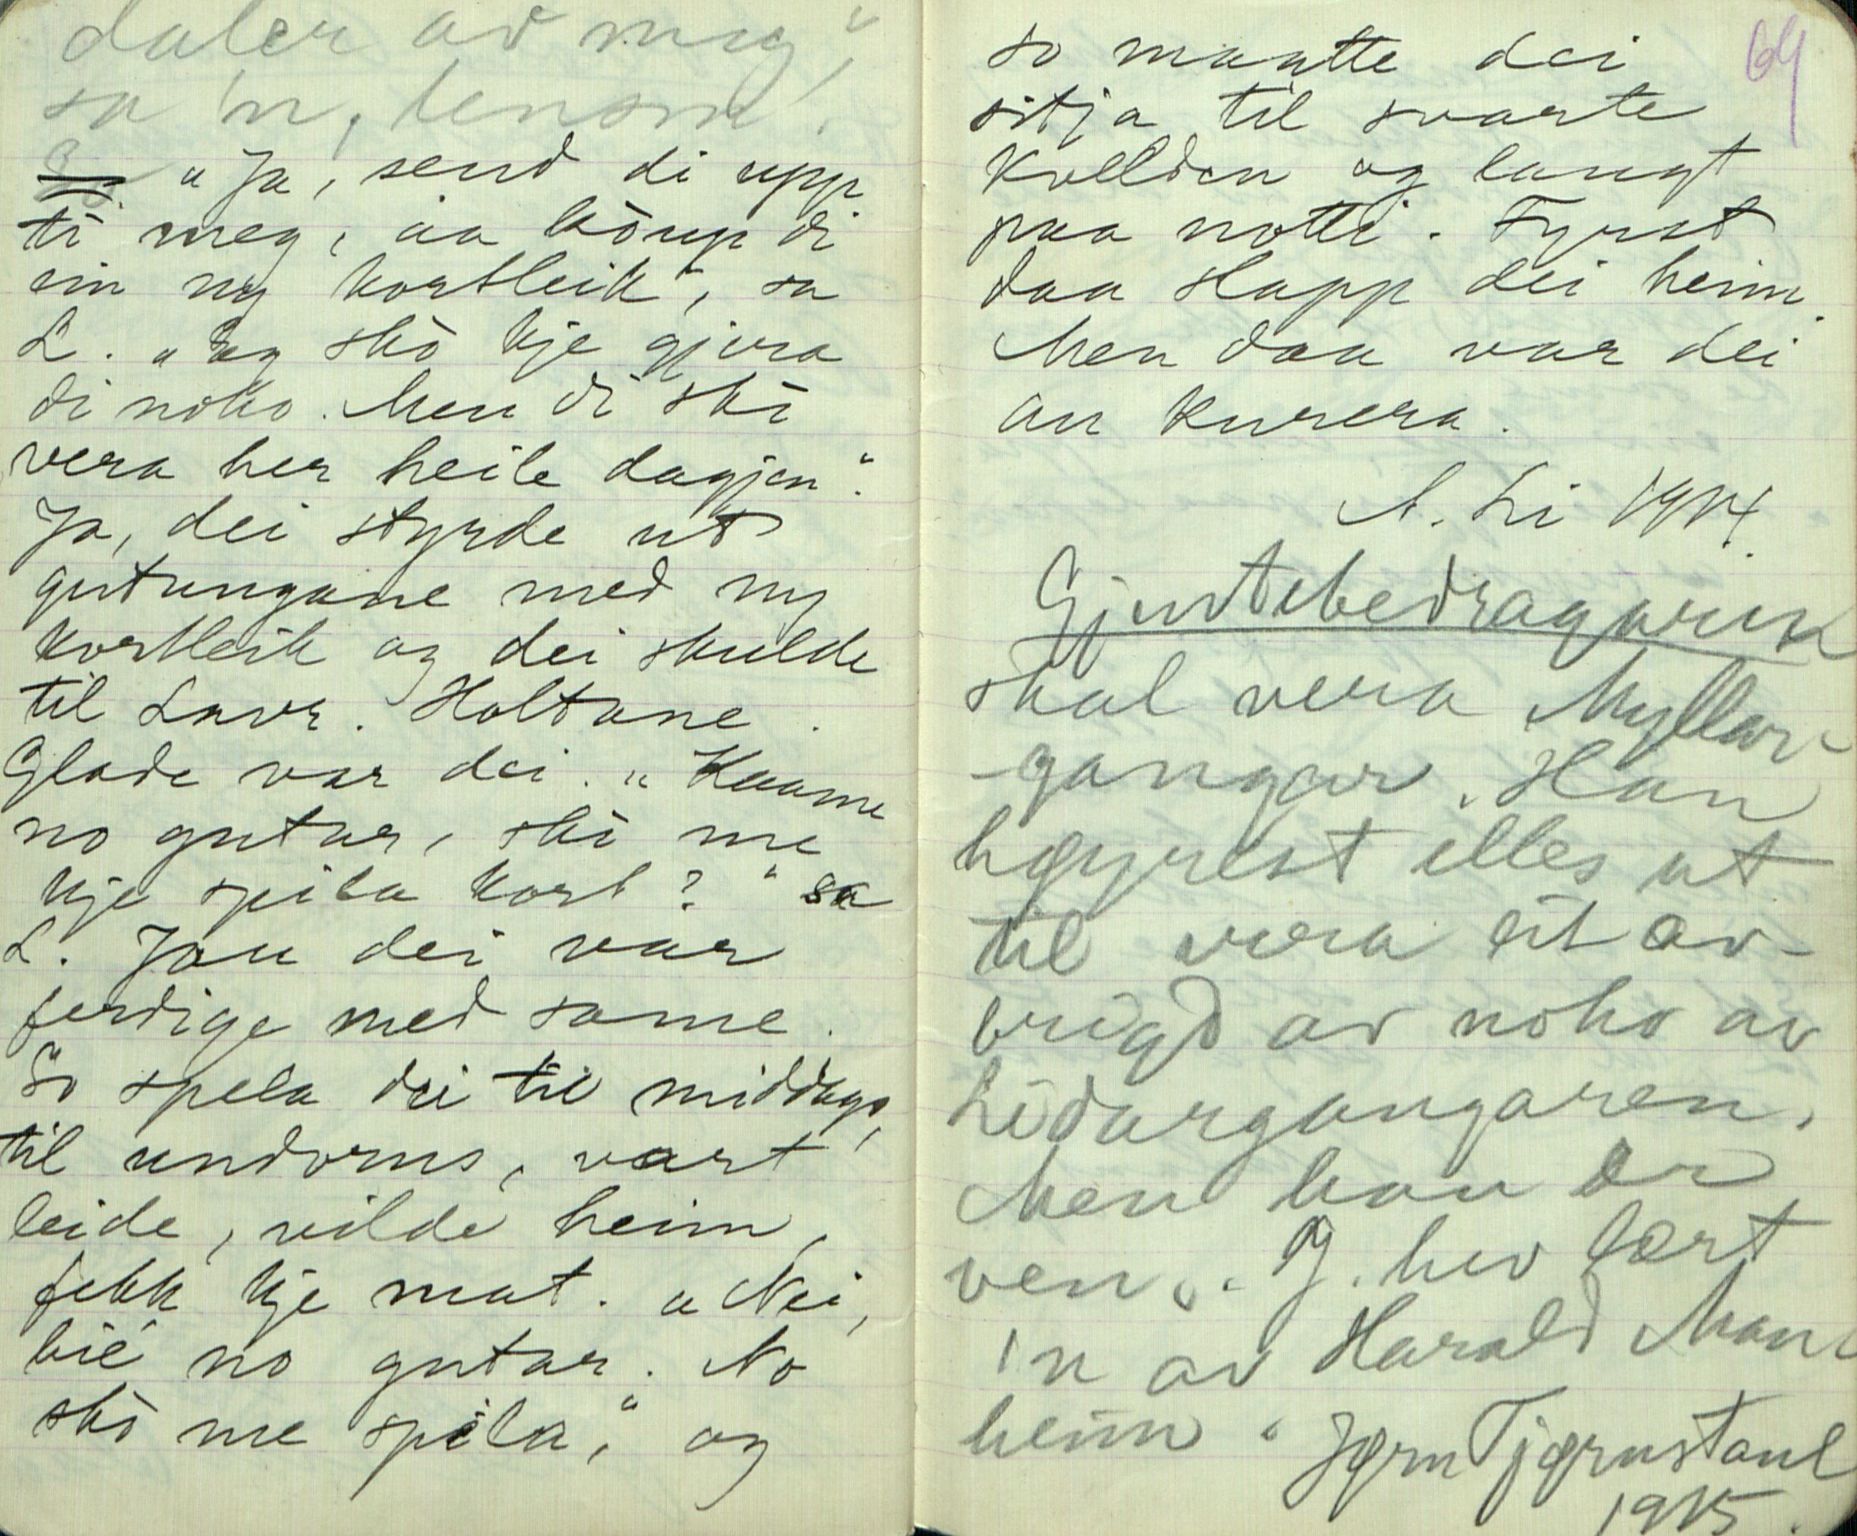 daler av meg",
sa 'n, lensm.
"Ja, send di upp
ti meg, aa kòup di
ein ny kortleik", sa
L. "Eg skò kje gjera
di noko. Men di skò
vera her heile dagjen".
Ja, dei styrde ut
gutungane med ny
kortleik og dei skulde
til Lavr. Holtane.
Glade var dei. "Kaame
no gutar, skò me
kje spila kort?" sa
L. Jau dei var
ferdige med same.
So spela dei til middags,
til undorns, vart
leide, vilde heim,
fekk kje mat. "Nei,
bié no gutar. No
skò me spila," og
64
so maatte dei
sitja til svarte
kvelden og langt
paa notti. Fyrst
daa slapp dei heim.
Men daa var dei
an kurera.
N. Li 1914.
Gjurtebedragaren
skal vera Myllar-
gangar. Han
høyrest elles ut
til vera eit av-
brigd av noko av
Lidargangaren.
Men han er
ven. J. hev lært
'n av Harald Man
heim. Jørn Tjørnstaul
1915.